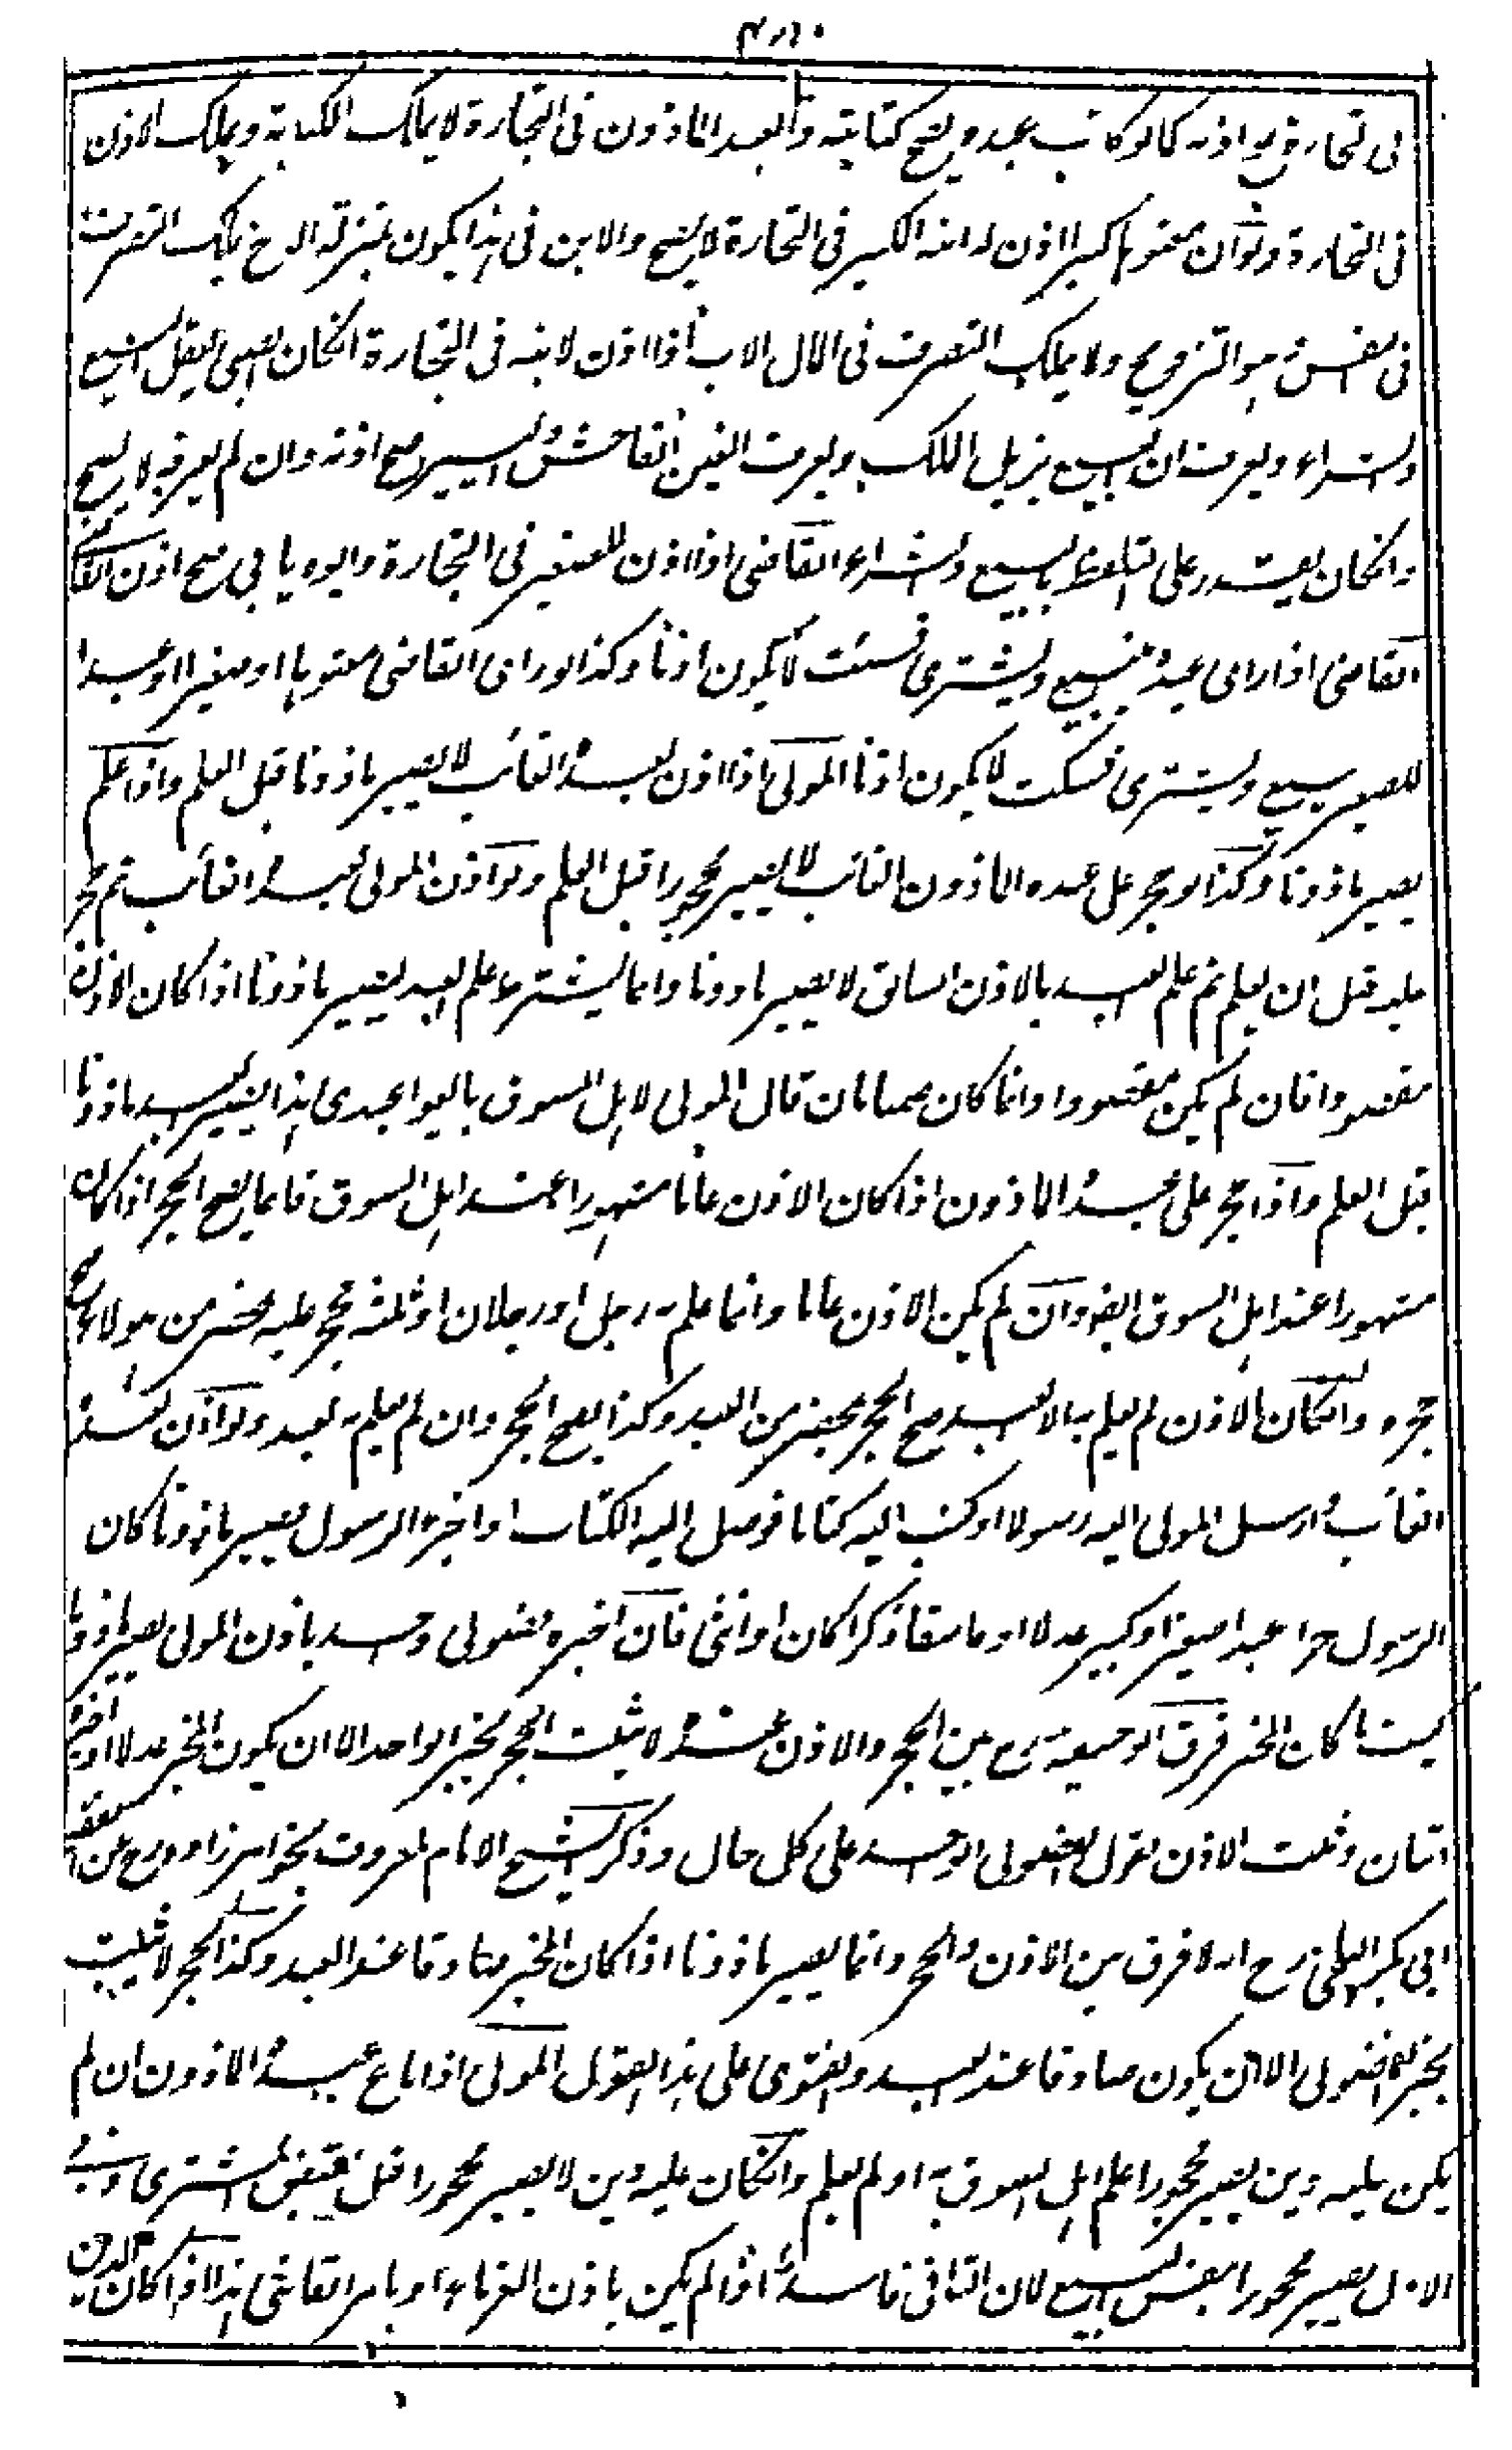 في تجارة صح اذنه كما لو كاتب عبده يصح كتابته والعبد الماذون في التجارة لا يملك الكتابة ويملك الاذن
في التجارة ولو ان معتوها كبيرا اذن له ابنه الكبير في التجارة لا يصح والابن في هذا يكون بمنزلة الاخ يملك التصرف
في النفس هو التزويج ولا يملك التصرف في المال الاب اذا اذن لابنه في التجارة انكان الصبي يعقل البيع
والشراء ويعرف ان البيع يزيل الملك ويعرف الغبن الفاحش واليسير صح اذنه وان لم يعرفه لا يصح
وانكان يقدر على التلفظ بالبيع والشراء القاضي اذا اذن للصغير في التجارة وابوه يابى صح اذن القاضي
القاضي اذا راى عبده يبيع ويشتري فسكت لا يكون اذنا وكذا لو راى القاضي معتوها او صغيرا او عبدا
للصغير يبيع ويشتري فسكت لا يكون اذنا المولى اذا اذن لعبده الغائب لا يصير ماذونا قبل العلم واذا علم
يصير ماذونا وكذا لو حجر على عبده الماذون الغائب لا يصير محجورا قبل العلم ولو اذن المولى لعبده الغائب ثم حجر
عليه قبل ان يعلم ثم علم العبد بالاذن السابق لا يصير ماذونا وانما يشترط علم العبد ليصير ماذونا اذا كان الاذن
مقصودا فان لم يكن مقصودا وانما كان ضمنا بان قال المولى لاهل السوق بايعوا عبدي هذا يصير العبد ماذونا
قبل العلم واذا حجر على عبده الماذون اذا كان الاذن عاما مشهورا عند اهل السوق فانما يصح الحجر اذا كان
مشهورا عند اهل السوق ايضا وان لم يكن الاذن عاما وانما علم به رجل او رجلان او ثلثة فحجر عليه بمحضر من هؤلاء صح
حجره وانكان الاذن لم يعلم به الا العبد صح الحجر بمحضر من العبد وكذا يصح الحجر وان لم يعلم به العبد ولو اذن لعبده
الغائب وارسل المولى اليه رسولا او كتب اليه كتابا فوصل اليه الكتاب او اخبره الرسول يصير ماذونا كان
الرسول حرا او عبدا صغيرا او كبيرا عدلا او فاسقا ذكرا كان او انثى فان اخبره فضولي واحد باذن المولى يصير ماذونا
كيف ما كان المخبر فرق ابو حنيفة رح بين الحجر والاذن عنده لا يثبت الحجر بخبر الواحد الا ان يكون المخبر عدلا او اخبره
اثنان ويثبت الاذن بقول الفضولي الواحد على كل حال وذكر الشيخ الامام المعروف بخواهرزاده رح عن الفقيه
ابي بكر البلخي رح انه لا فرق بين الاذن والحجر وانما يصير ماذونا اذا كان المخبر صادقا عند العبد وكذا الحجر لا يثبت
بخبر الفضولي الا ان يكون صادقا عند العبد والفتوى على هذا القول المولى اذا باع عبده الماذون ان لم
يكن عليه دين يصير محجورا علم اهل السوق به او لم يعلم وانكان عليه دين لا يصير محجورا قبل قبض المشتري وفي
الاول يصير محجورا بنفس البيع لان الثاني فاسد اذا لم يكن باذن الغرماء او بامر القاضي هذا اذا كان الدين